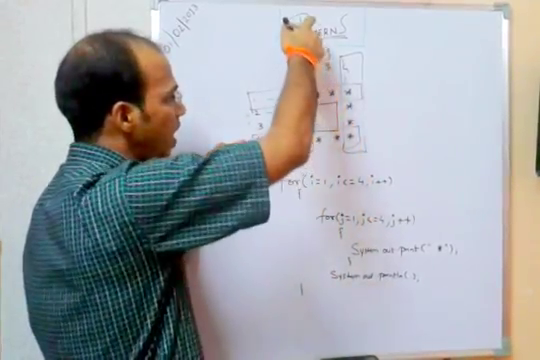 01/02/2013
3 4
* *
2 *
3 *
* * *
for(i=1, i<=4, i++)
{
for(j=1, j<=4, j++)
{
System.out.print(" *");
}
System.out.println( );
}